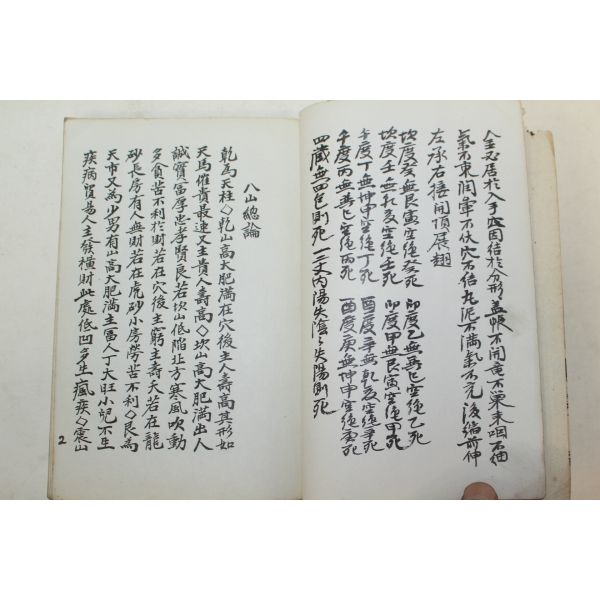 金忌居於入手 因結於分形 蓋帳不開 竜不 束咽不細
氣不束 潤 不伏 穴不結 丸泥不滿 氣不充 後 前伸
左承右接 開頂展翅
坎度癸無艮寅空絶癸死 卯度乙無 巳空絶乙死
坎度壬無乾亥空絶壬死 卯度甲無艮寅空絶甲死
午度丁無坤申空絶丁死 酉度辛無乾亥空絶辛死
午度丙無 巳空絶丙死 酉度庚無坤申空絶庚死
四藏無四 則死 一二丈內陽失陰 陰失陽則死
八山總論
乾爲天柱◇乾山高大肥滿在穴後主人壽高其形如
天馬催貴最速又主貴人壽高◇坎山高大肥滿出人
誠實富厚忠孝賢良若坎山低陷北方寒風吹動
多貧苦不利於財若在穴後主窮主壽夭若在龍
砂長房有人無財若在虎砂小房勞苦不利◇艮爲
天市又爲少男有山高大肥滿主富人丁大旺小兒不生
疾病貿易人主發橫財此處低凹多生瘋疾◇震山
2